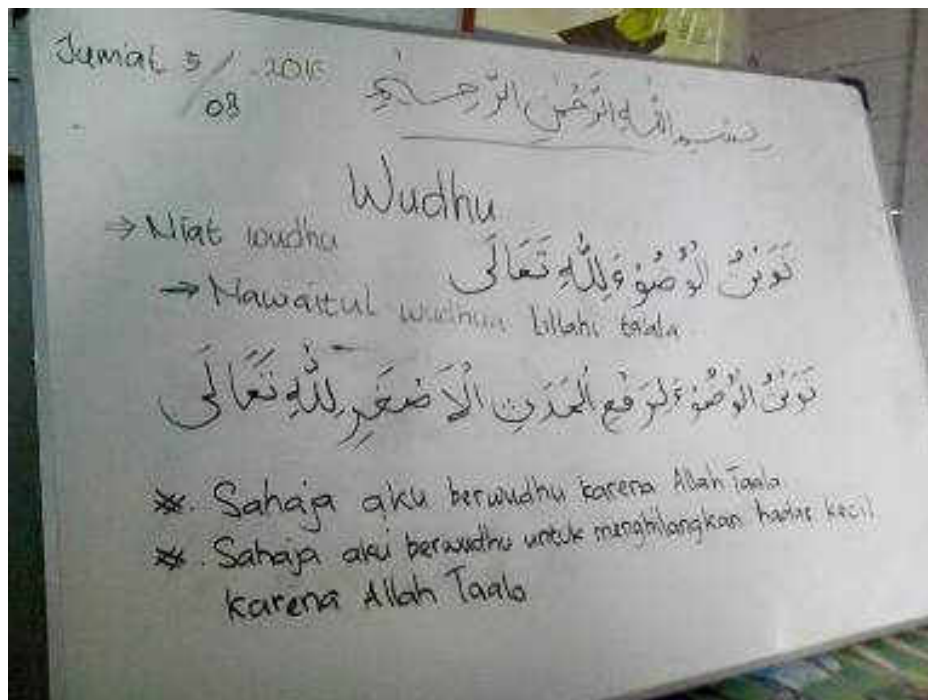 Jumat 5/08 2016
بسم الله الرّحمٰن الرّحيم
Wudhu
→ Niat wudhu
نَوَيْتُ الْوُضُوْءَ لِلّٰهِ تَعَالَى
→ Nawaitul wudhua lillahi taala
نَوَيْتُ الْوُضُوْءَ لِرَفْعِ الْحَدَثِ الْاَصْغَرِ لِلّٰهِ تَعَالَى
*. Sahaja aku berwudhu karena Allah Taala.
*. Sahaja aku berwudhu untuk menghilangkan hadas kecil
karena Allah Taala